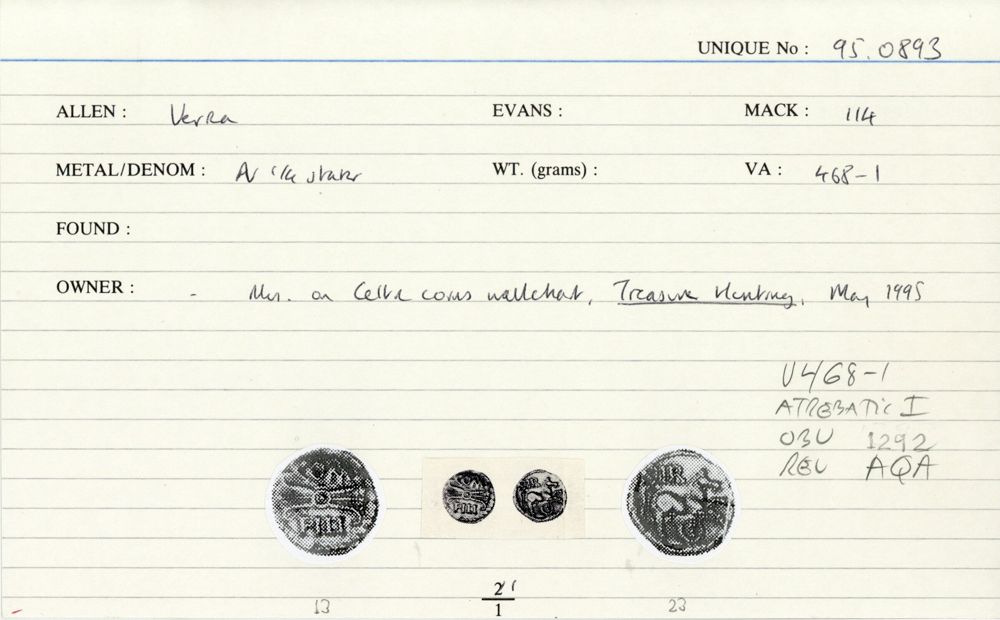 UNIQUE No : 95.0893
ALLEN : Verica EVANS : MACK : 114
METAL/DENOM : AV 1/4 stater WT. (grams) : VA : 468-1
FOUND :
OWNER : - Illus. on Celtic coins wallchart, Treasure Hunting, May 1995
V468-1
ATREBATIC I
OBV 1292
REV AQA
COM
FILI
VIR
13 1 23